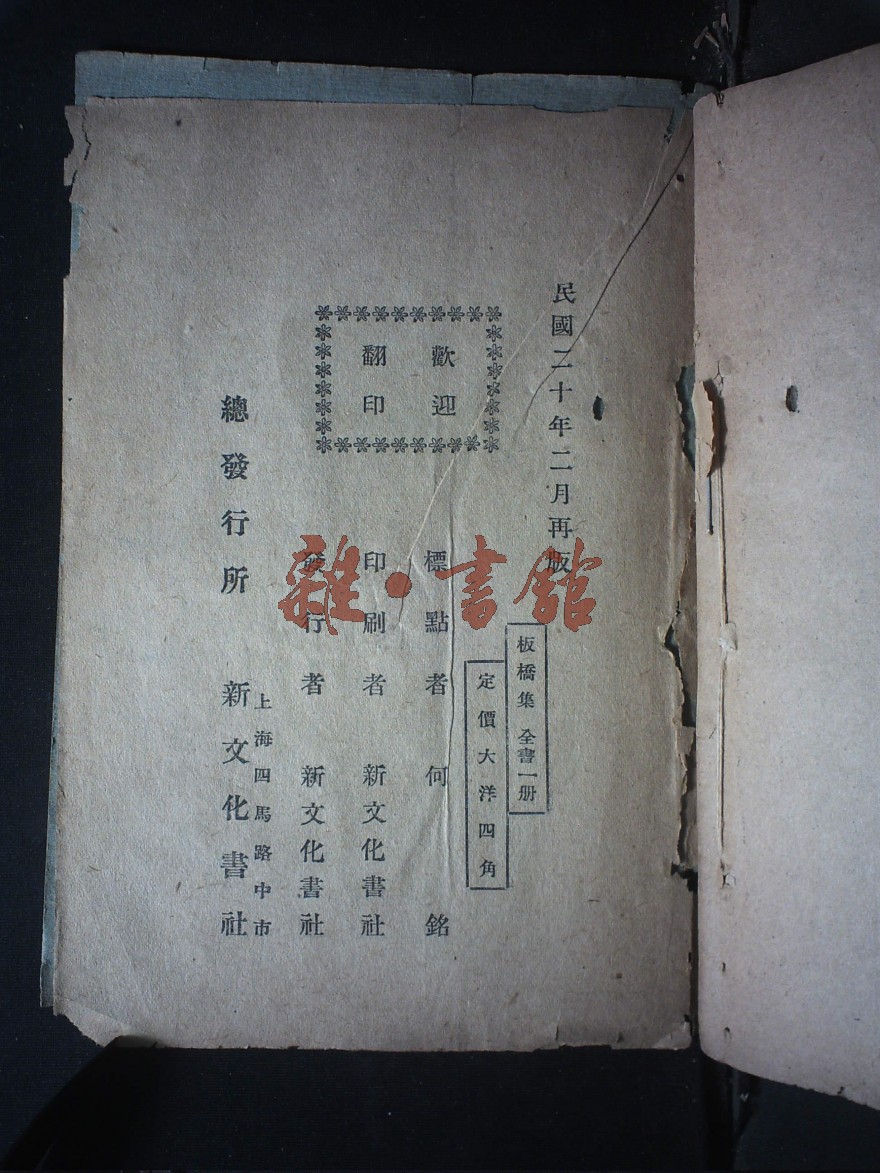 民國二十年二月再版
板橋集 全書一册
定價大洋四角
歡迎
翻印
標點者 何銘
印刷者 新文化書社
發行者 新文化書社
上海四馬路中市
總發行所 新文化書社
雜·書館